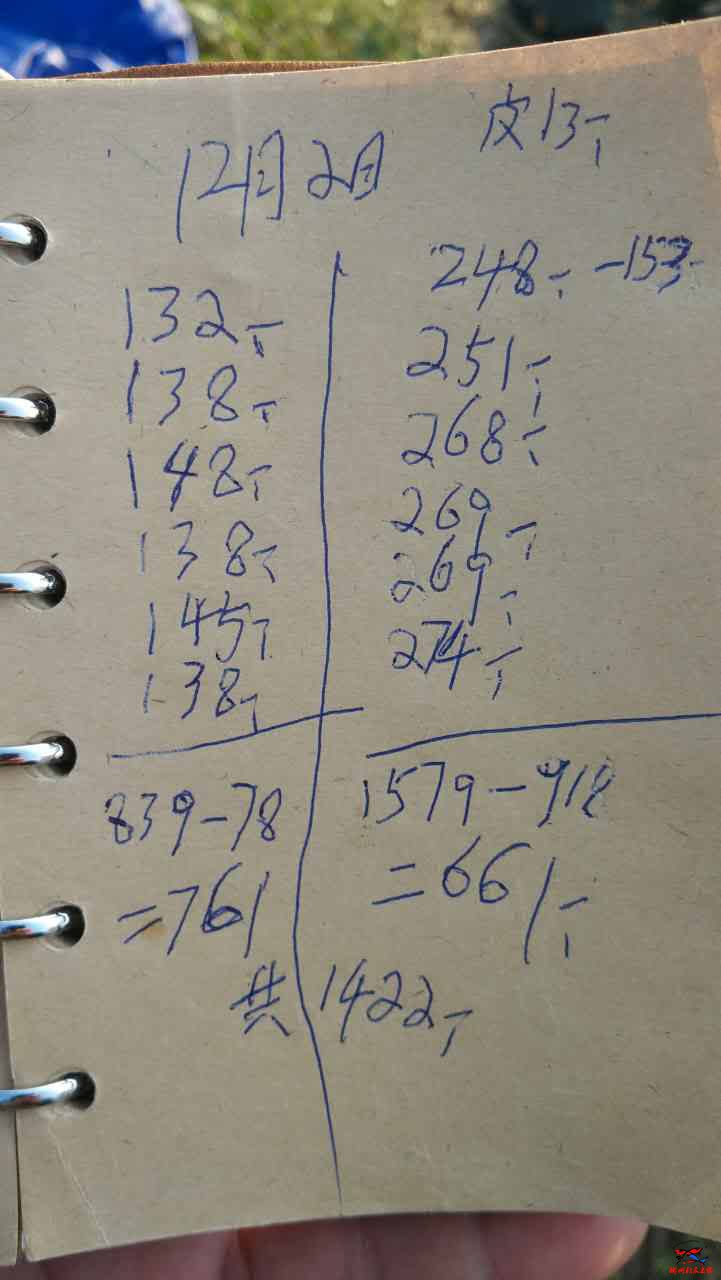 皮13斤
12月2日
132斤
138斤
148斤
138斤
145斤
138斤
839-78
=761
248斤 -153
251斤
268斤
269斤
269斤
274斤
1579-918
=661斤
共1422斤